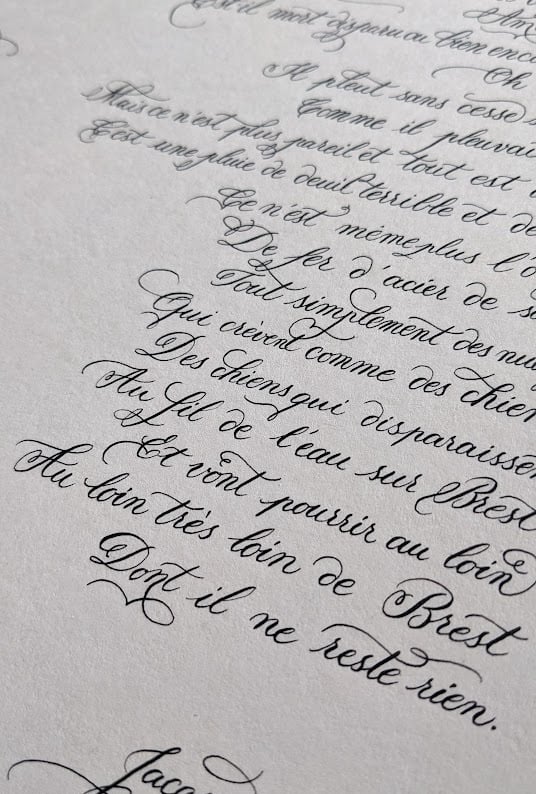 Est il mort disparu ou bien enco
Oh
Il pleut sans cesse
Comme il pleuvai
Mais ce n'est plus pareil et tout est
C'est une pluie de deuil terrible et de
Ce n'est même plus l'o
De fer d'acier de s
Tout simplement des nu
Qui crèvent comme des chien
Des chiens qui disparaissen
Au fil de l'eau sur Brest
Et vont pourrir au loin
Au loin très loin de Brest
Dont il ne reste rien.
Jacq